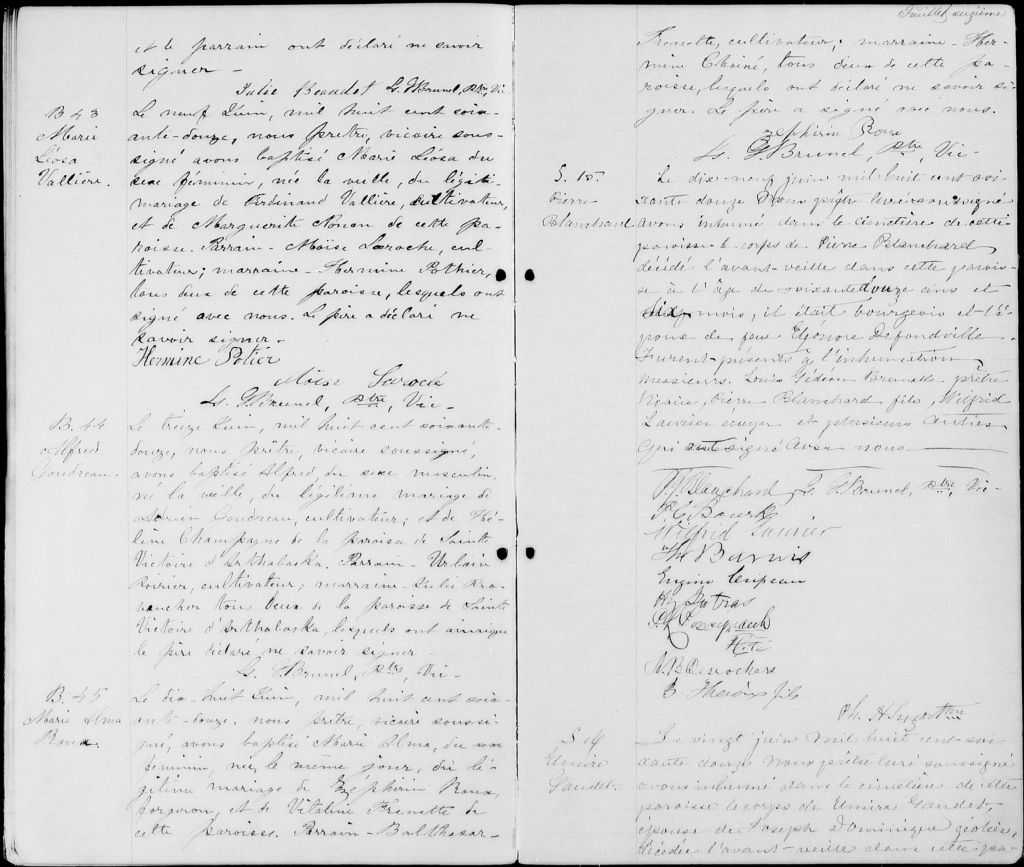 et le parrain ont déclaré ne savoir
signer -
Julie Beaudet L. G. Brunel, Ptre, Vic.
B 43
Marie
Léosa
Vallière.
Le neuf Juin, mil huit cent soix-
ante-douze, nous prêtre, vicaire sous-
signé avons baptisé Marie Léosa du
sexe féminin, née la veille, du légiti-
mariage de Ferdinand Vallière, cultivateur,
et de Marguerite Nonan de cette pa-
roisse. Parrain - Moïse Laroche, cul-
tivateur; marraine - Hermine Pothier,
tous deux de cette paroisse, lesquels ont
signé avec nous. Le père a déclaré ne
savoir signer -
Hermine Potier
Moïse Laroch
L. G. Brunel, Ptre, Vic -
B. 44
Alfred
Goudreau.
Le treize Juin, mil huit cent soixante-
douze, nous, prêtre, vicaire soussigné,
avons baptisé Alfred, du sexe masculin,
né la veille, du légitime mariage de
Adrien Goudreau, cultivateur; et de Hé-
lène Champagne de la paroisse de Sainte
Victoire d'Arthabaska. Parrain - Urbain
Poirier, cultivateur; marraine - Julie
tous deux de la paroisse de Sainte
Victoire d'Arthabaska, lesquels ont ainsi que
le père déclaré ne savoir signer -
L. G. Brunel, Ptre, Vic -
B. 45
Marie Alma
Roux.
Le dix-huit Juin, mil huit cent soix-
ante-douze, nous, prêtre, vicaire soussi-
gné, avons baptisé Marie Alma, du sexe
féminin, née le même jour, du lé-
gitime mariage de Zéphirin Roux,
forgeron, et de Vitaline Frenette de
cette paroisse. Parrain - Balthasar -
Feuillet seizième
Frenette, cultivateur; marraine - Her-
mine Chainé, tous deux de cette pa-
roisse, lesquels ont déclaré ne savoir si-
gner. Le père a signé avec nous.
Zephirin Roux
L. G. Brunel, Ptre, Vic -
S. 15
Pierre
Blanchard
Le dix-neuf juin mil huit cent soi-
xante douze Nous prêtre curé soussigné
avons inhumé dans le cimetière de cette
paroisse le corps de Pierre Blanchard,
décédé l'avant-veille dans cette parois-
se à l'âge de soixante douze ans et
six mois, il était bourgeois et l'é-
poux de feu Eléonore Defondville.
Furent présents à l'inhumation
messieurs. Louis Gédéon Brunelle prêtre
Vicaire, Pierre Blanchard fils, Wilfrid
Laurier ecuyer et plusieurs Autres
qui ont signé avec nous.
Blanchard L. G. Brunel, Ptre, Vic -
Wilfrid Laurier
Eugène Crépeau
Patras
N. B. Desrochers
E. Theroux fils
Ph. H. Suzor Ptre
S 16
Elmire
Gaudet.
Le vingt juin mil huit cent soi-
xante douze Nous prêtre curé soussigné
avons inhumé dans le cimetière de cette
paroisse le corps de Elmire Gaudet,
épouse de Joseph Dominique geôlier,
décédée l'avant-veille dans cette pa-